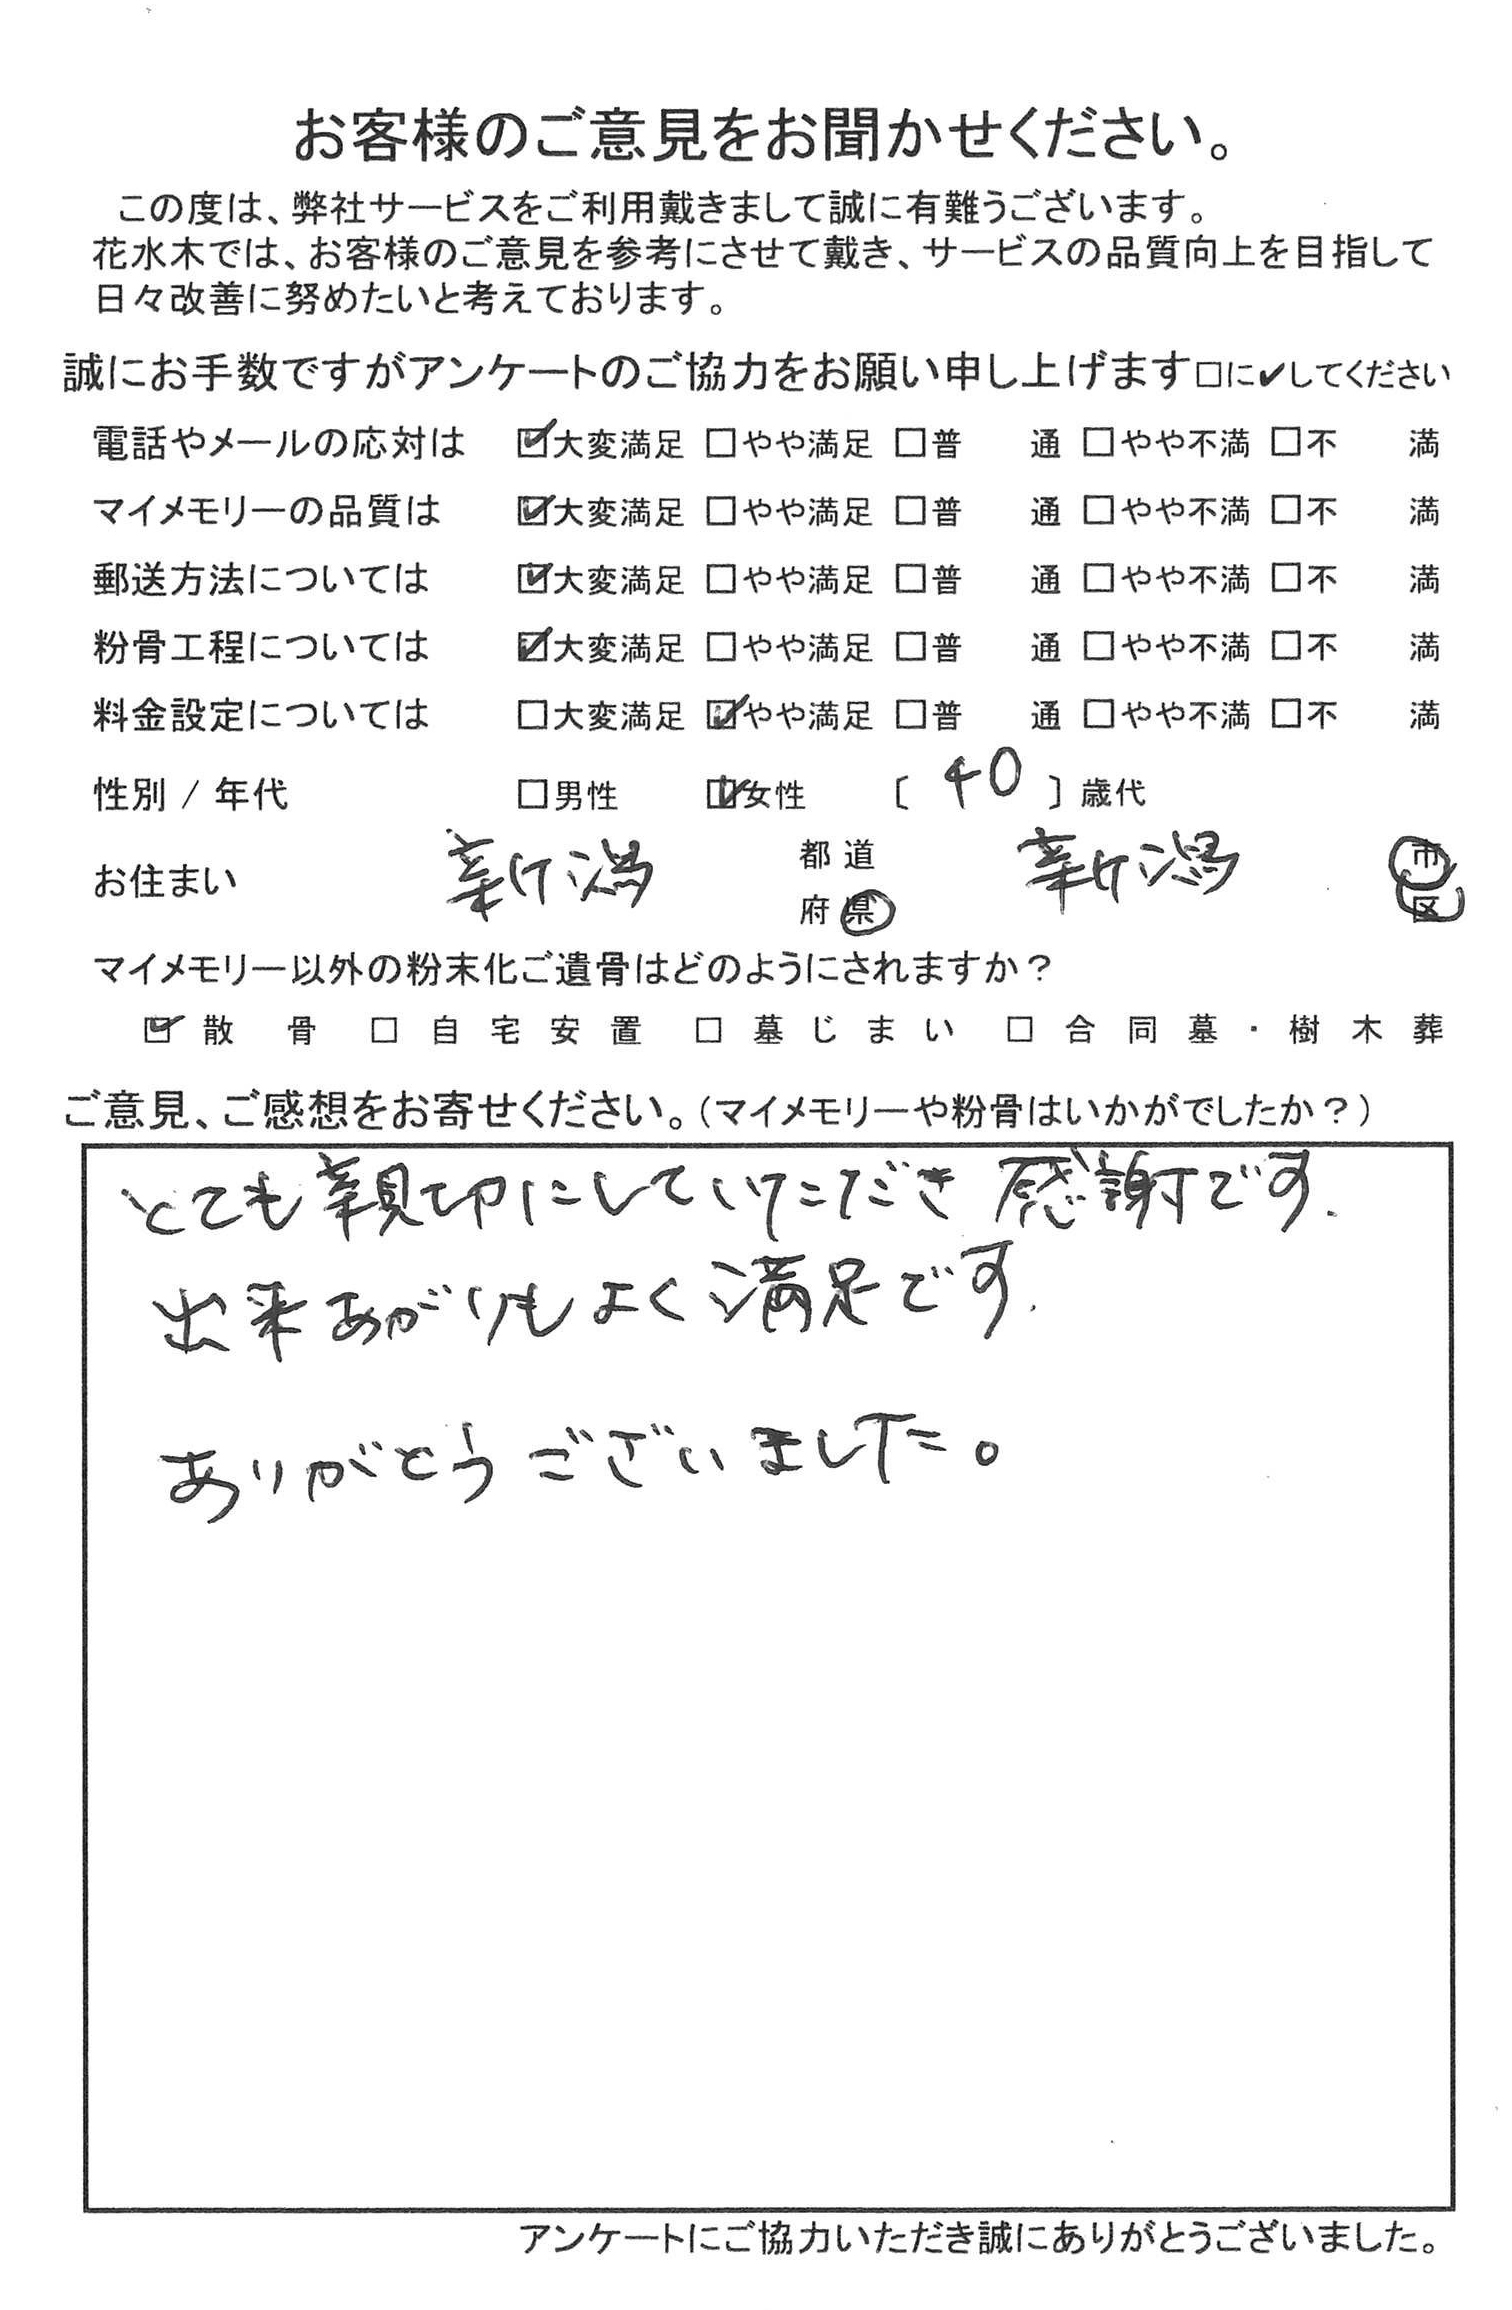 お客様のご意見をお聞かせください。
この度は、弊社サービスをご利用戴きまして誠に有難うございます。
花水木では、お客様のご意見を参考にさせて戴き、サービスの品質向上を目指して
日々改善に努めたいと考えております。
誠にお手数ですがアンケートのご協力をお願い申し上げます□に✔してください
電話やメールの応対は ☑大変満足 □やや満足 □普 通 □やや不満 □不 満
マイメモリーの品質は ☑大変満足 □やや満足 □普 通 □やや不満 □不 満
郵送方法については ☑大変満足 □やや満足 □普 通 □やや不満 □不 満
粉骨工程については ☑大変満足 □やや満足 □普 通 □やや不満 □不 満
料金設定については □大変満足 ☑やや満足 □普 通 □やや不満 □不 満
性別 / 年代 □男性 ☑女性 〔 40 〕歳代
お住まい 新潟 都道府県 新潟 市区
マイメモリー以外の粉末化ご遺骨はどのようにされますか？
☑ 散骨 □ 自宅安置 □ 墓じまい □ 合同墓・樹木葬
ご意見、ご感想をお寄せください。（マイメモリーや粉骨はいかがでしたか？）
とても親切にしていただき 感謝です.
出来あがりもよく満足です.
ありがとうございました。
アンケートにご協力いただき誠にありがとうございました。